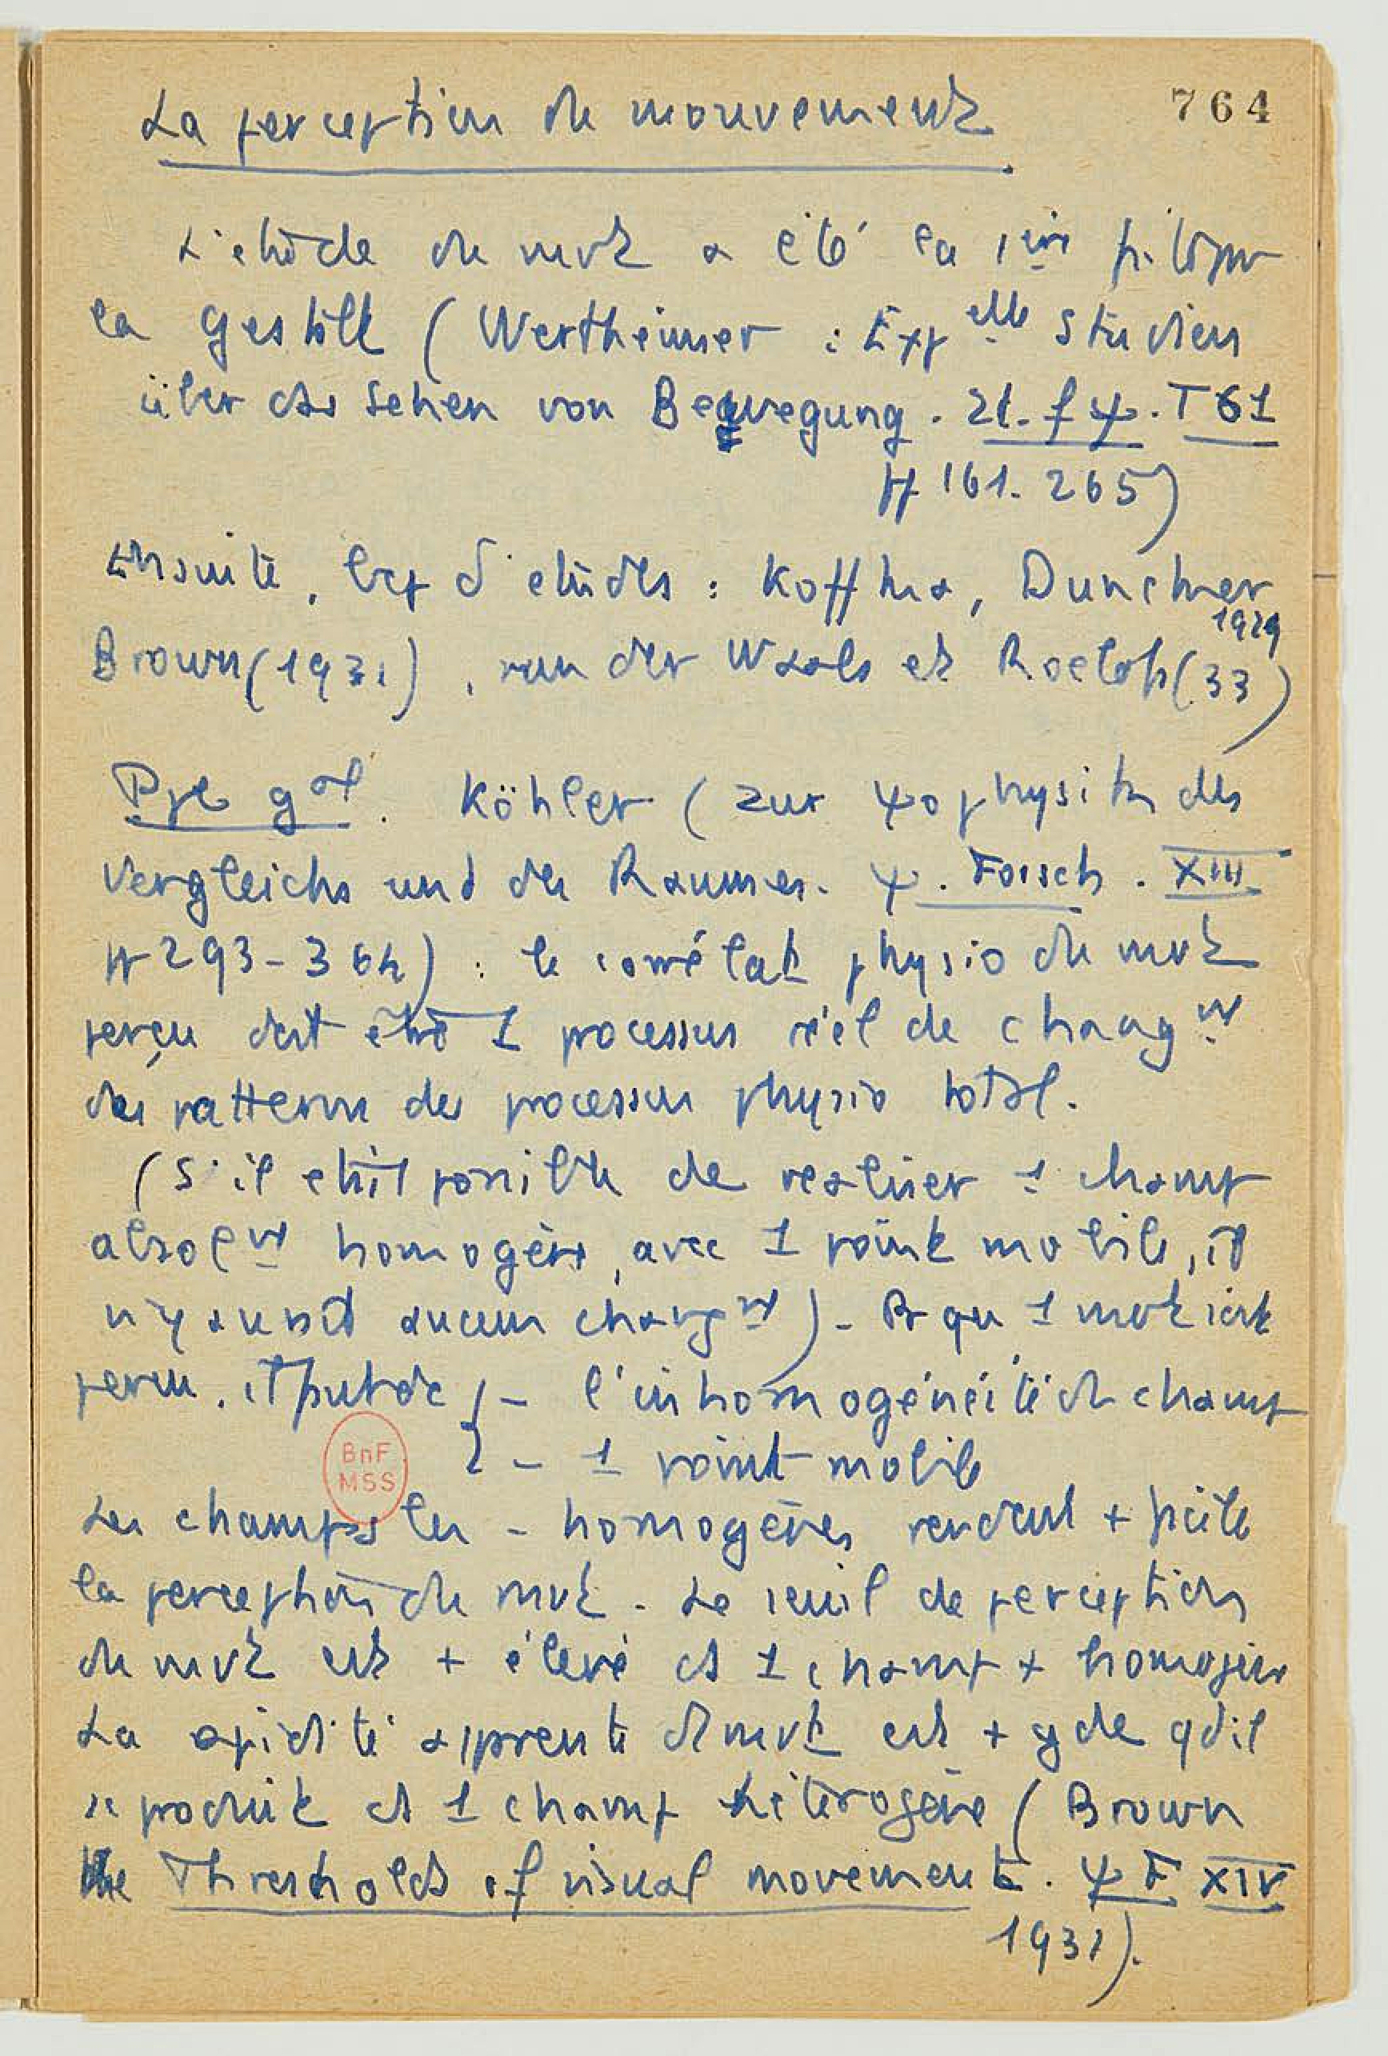 764
La perception du mouvement
L'étude du mvt a été la 1ère
la Gestalt (Wertheimer : Exp elle Studien
über das Sehen von Bewegung. Zt. f ψ. T 61
pp 161-265)
Ensuite, bcp d'études : Koffka, Duncker
1929
Brown (1931), van der Waals et Roelofs (33)
Ppe gal. Köhler (Zur ψophysik des
Vergleichs und des Raumes. ψ. Forsch. XIII
pp 293-364) : le corrélat physio du mvt
perçu doit être 1 processus réel de chang nt
des patterns des processus physio total.
(S'il était possible de réaliser 1 champ
absol nt homogène, avec 1 point mobile, il
n'y aurait aucun chang nt) - Pr que 1 mvt soit
perçu, il faut de { - l'inhomogénéité du champ
- 1 point mobile
BnF
MSS
Les champs les - homogènes rendent + facile
la perception du mvt. Le seuil de perception
du mvt est + élevé ds 1 champ + homogène
La rapidité apparente du mvt est + gde qd il
se produit ds 1 champ hétérogène (Brown
the Thresholds of visual movement. ψ F XIV
1931).